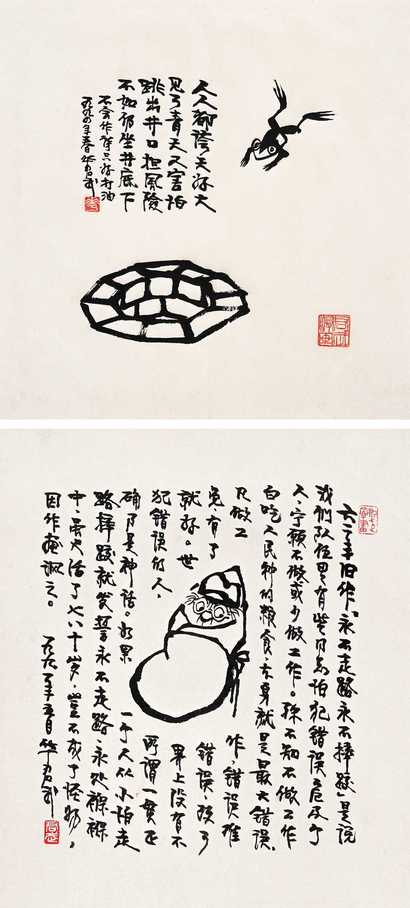 人人都誇天大
见了青天又害怕
跳出井口担风险
不如仍坐井底下
不会作诗只好打油
一九九四年春华君武
六二年旧作「永不走路永不摔跤」是说
我们队伍里有些同志怕犯错误危及个
人,宁愿不做或少做工作。殊不知不做工作
白吃人民种的粮食,本身就是最大错误。
只做工作,错误难
免,有了错误,改了
就好。世界上没有不
犯错误的人,所谓一贯正
确乃是神话。如果一个人从小怕走
路摔跤就发誓永不走路永处襁褓
中,而又活了七八十岁,岂不成了怪物,
因作之。一九九年五月华君武